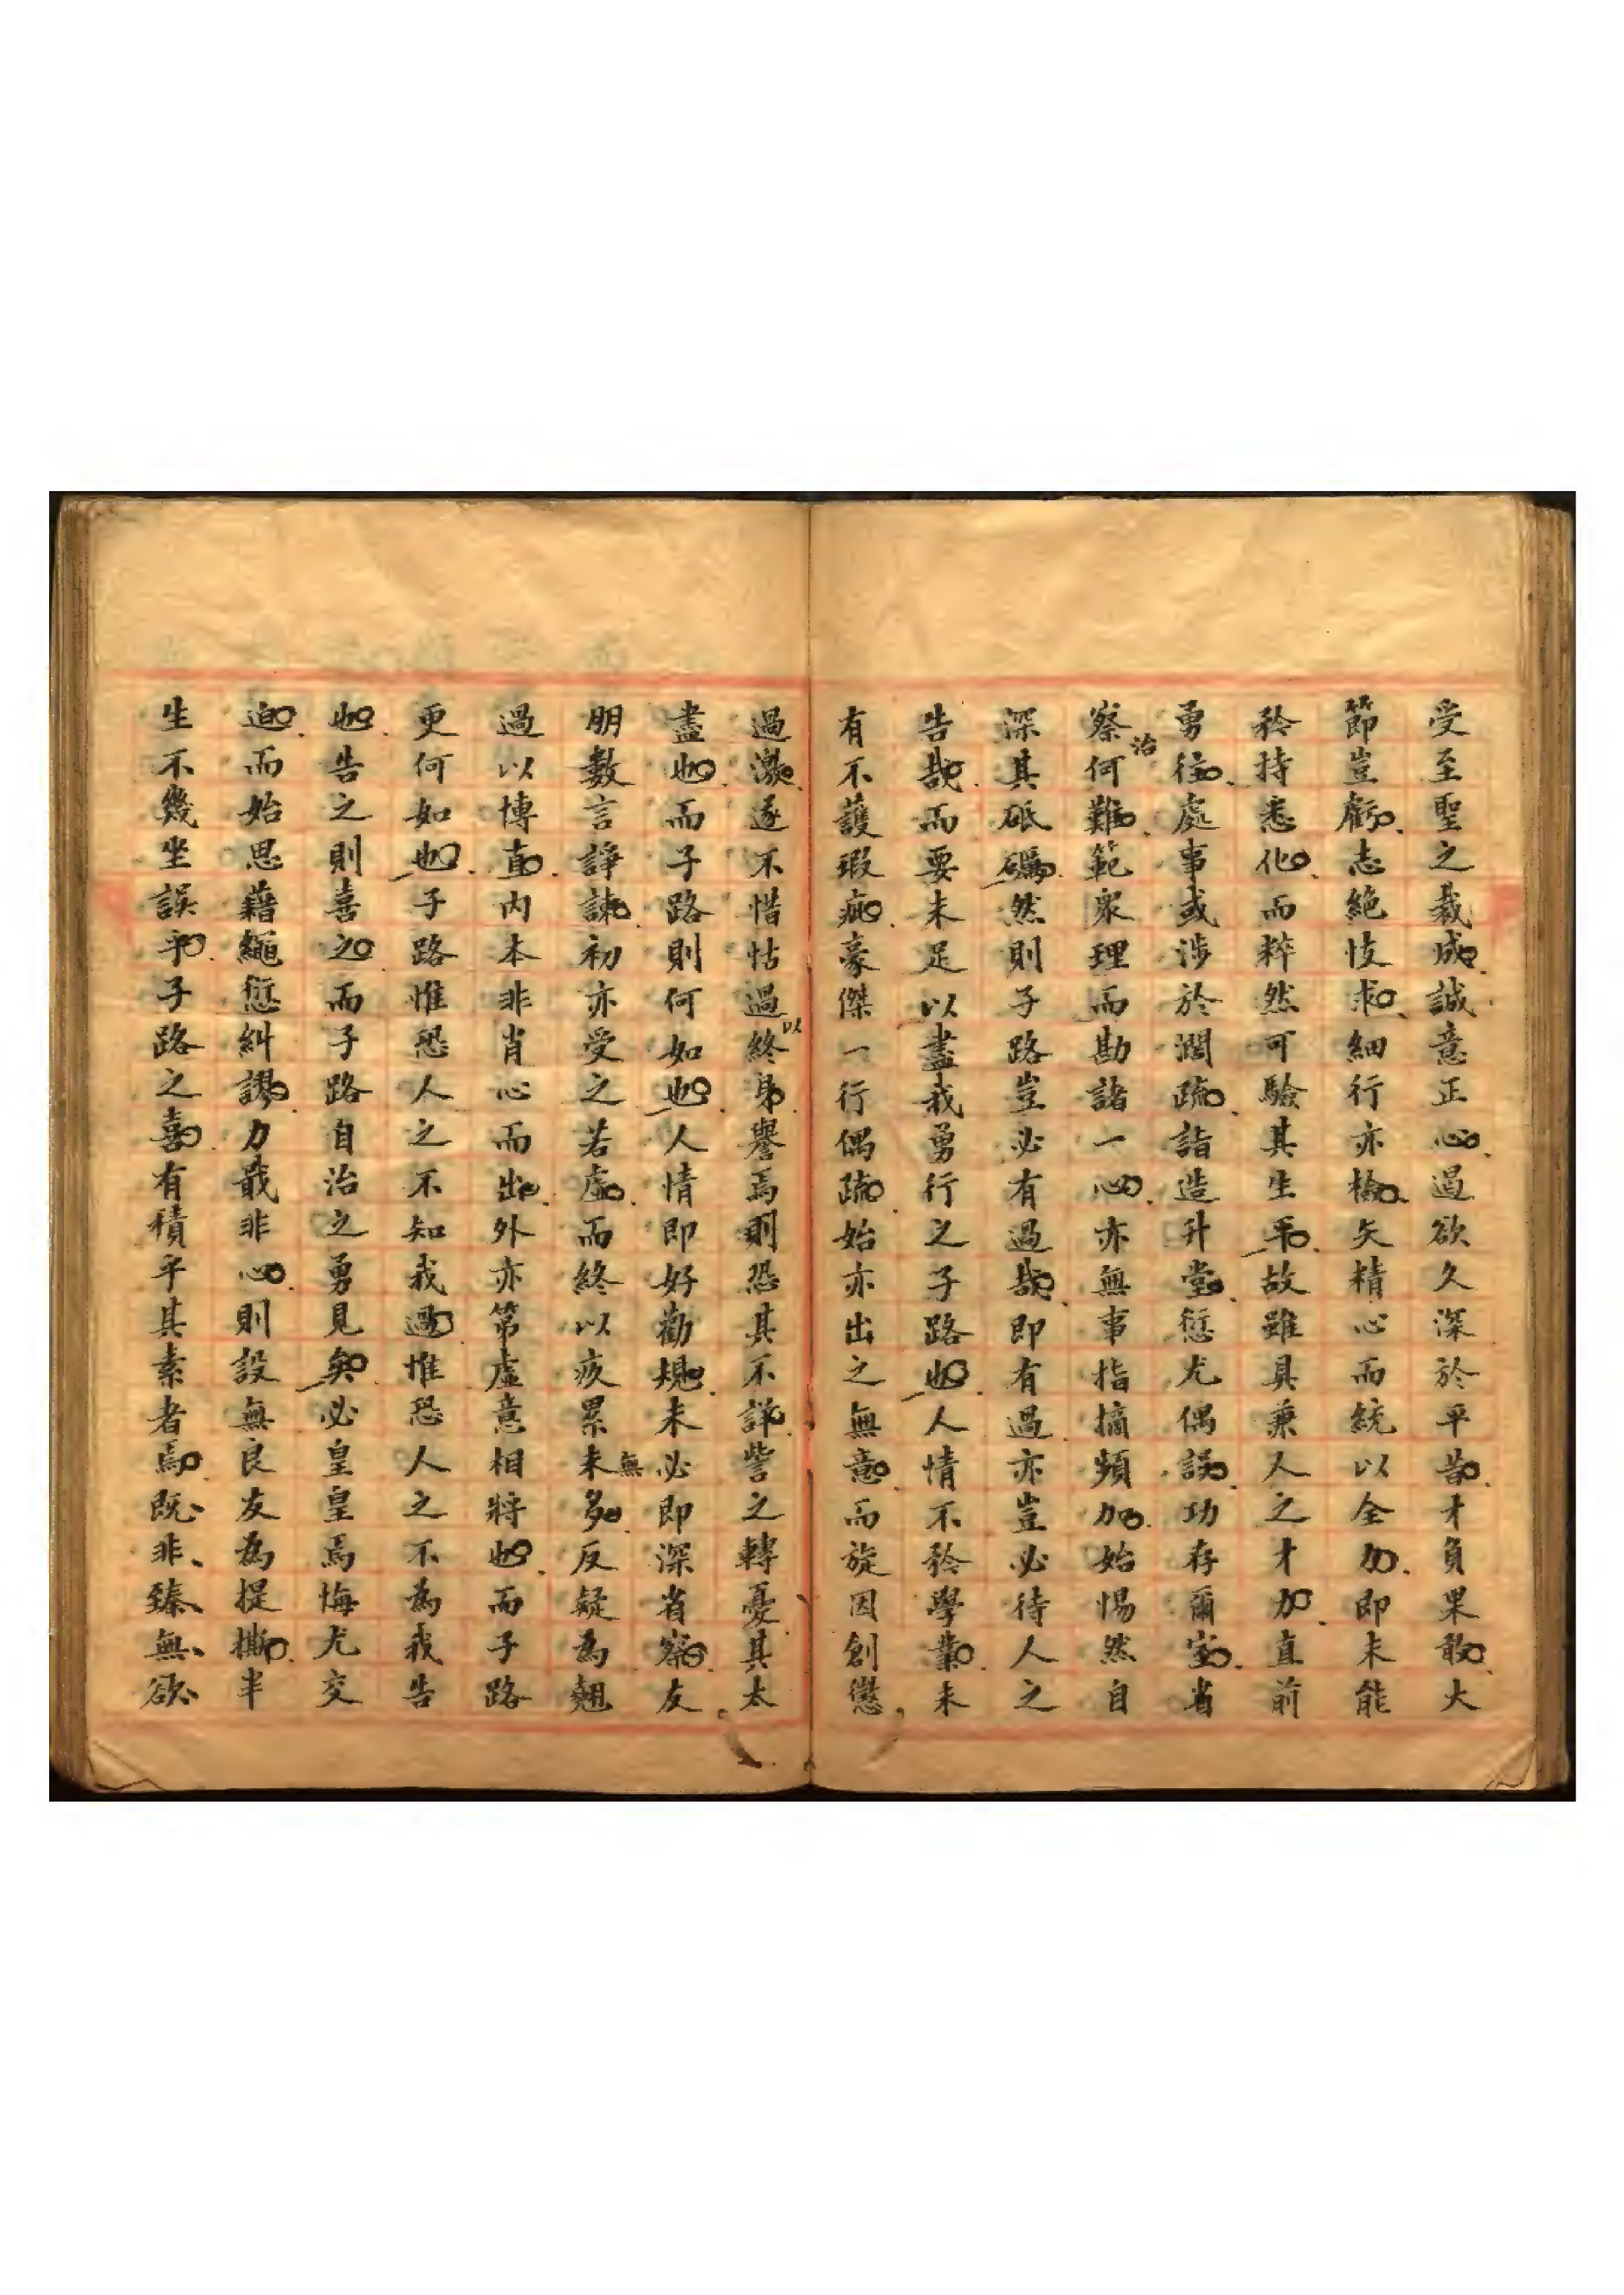 受至聖之裁成誠意正心過欲久深於平昔才負果敢大
節豈虧志絕忮求細行亦檢矢精心而統以全力即未能
矜持悉化而粹然可驗其生平故雖具兼人之才加直前
勇往處事或涉於濶疏詣造升堂愆尤偶誤功存爾室省
察治何難範眾理而勘諸一心亦無事指摘頻加始惕然自
深其砥礪然則子路豈必有過哉即有過亦豈必待人之
告哉而要未足以盡我勇行之子路也人情不矜學業未
有不護瑕疵豪傑一行偶疏始亦出之無意而旋因創懲
過激遂不惜怙過以終身譽焉則恐其不詳訾之轉憂其太
盡也而子路則何如也人情即好勸規未必即深省察友
朋數言諍諫初亦受之若虛而終以疚累未無多反疑為翹
過以博直內本非肖心而出外亦第虛意相將也而子路
更何如也子路惟恐人之不知我過惟恐人之不為我告
也告之則喜之而子路自治之勇見矣必皇皇焉悔尤交
迫而始思藉繩愆糾謬力戢非心則設無良友為提撕半
生不幾坐誤乎子路之喜有積乎其素者焉既非臻無欲